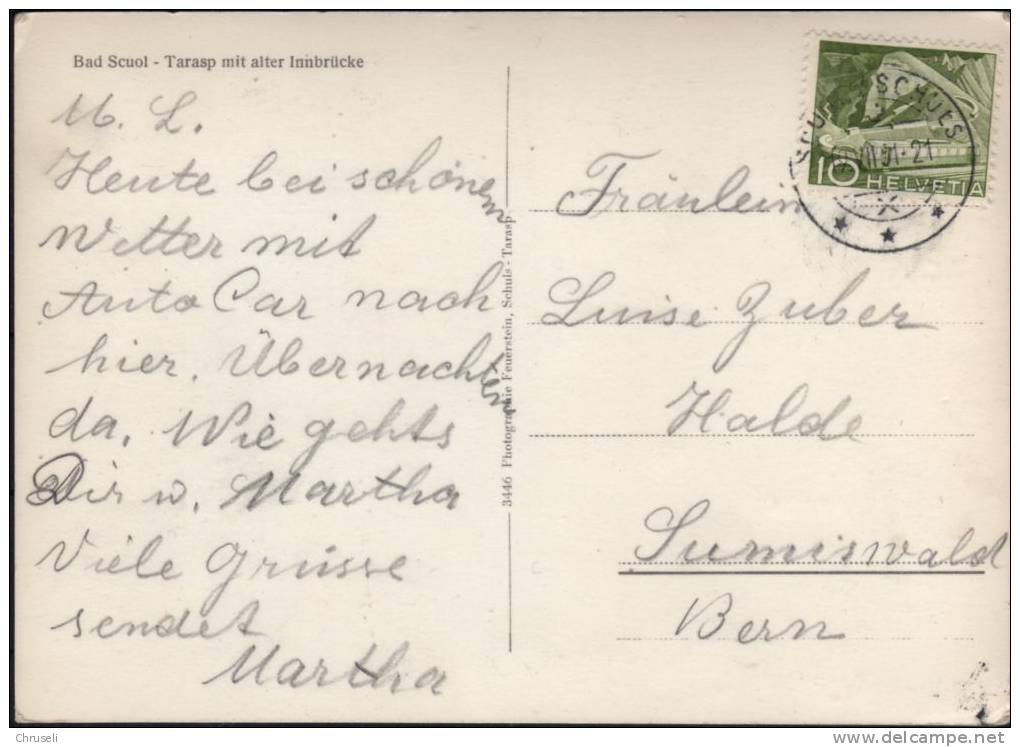 Bad Scuol - Tarasp mit alter Innbrücke
M. L.
Heute bei schönem
Wetter mit
Auto Car nach
hier. Übernachten
da. Wie gehts
Dir u. Martha
Viele Grüsse
sendet
Martha
3446 Photographie Feuerstein, Schuls-Tarasp
SCHULS
VIII 51-21
10 HELVETIA
Fräulein
Luise Zuber
Halde
Sumiswald
Bern
© Chruseli
www.delcampe.net